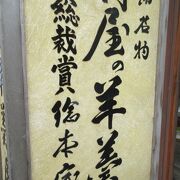 名物
屋の羊羹
総裁賞総本家